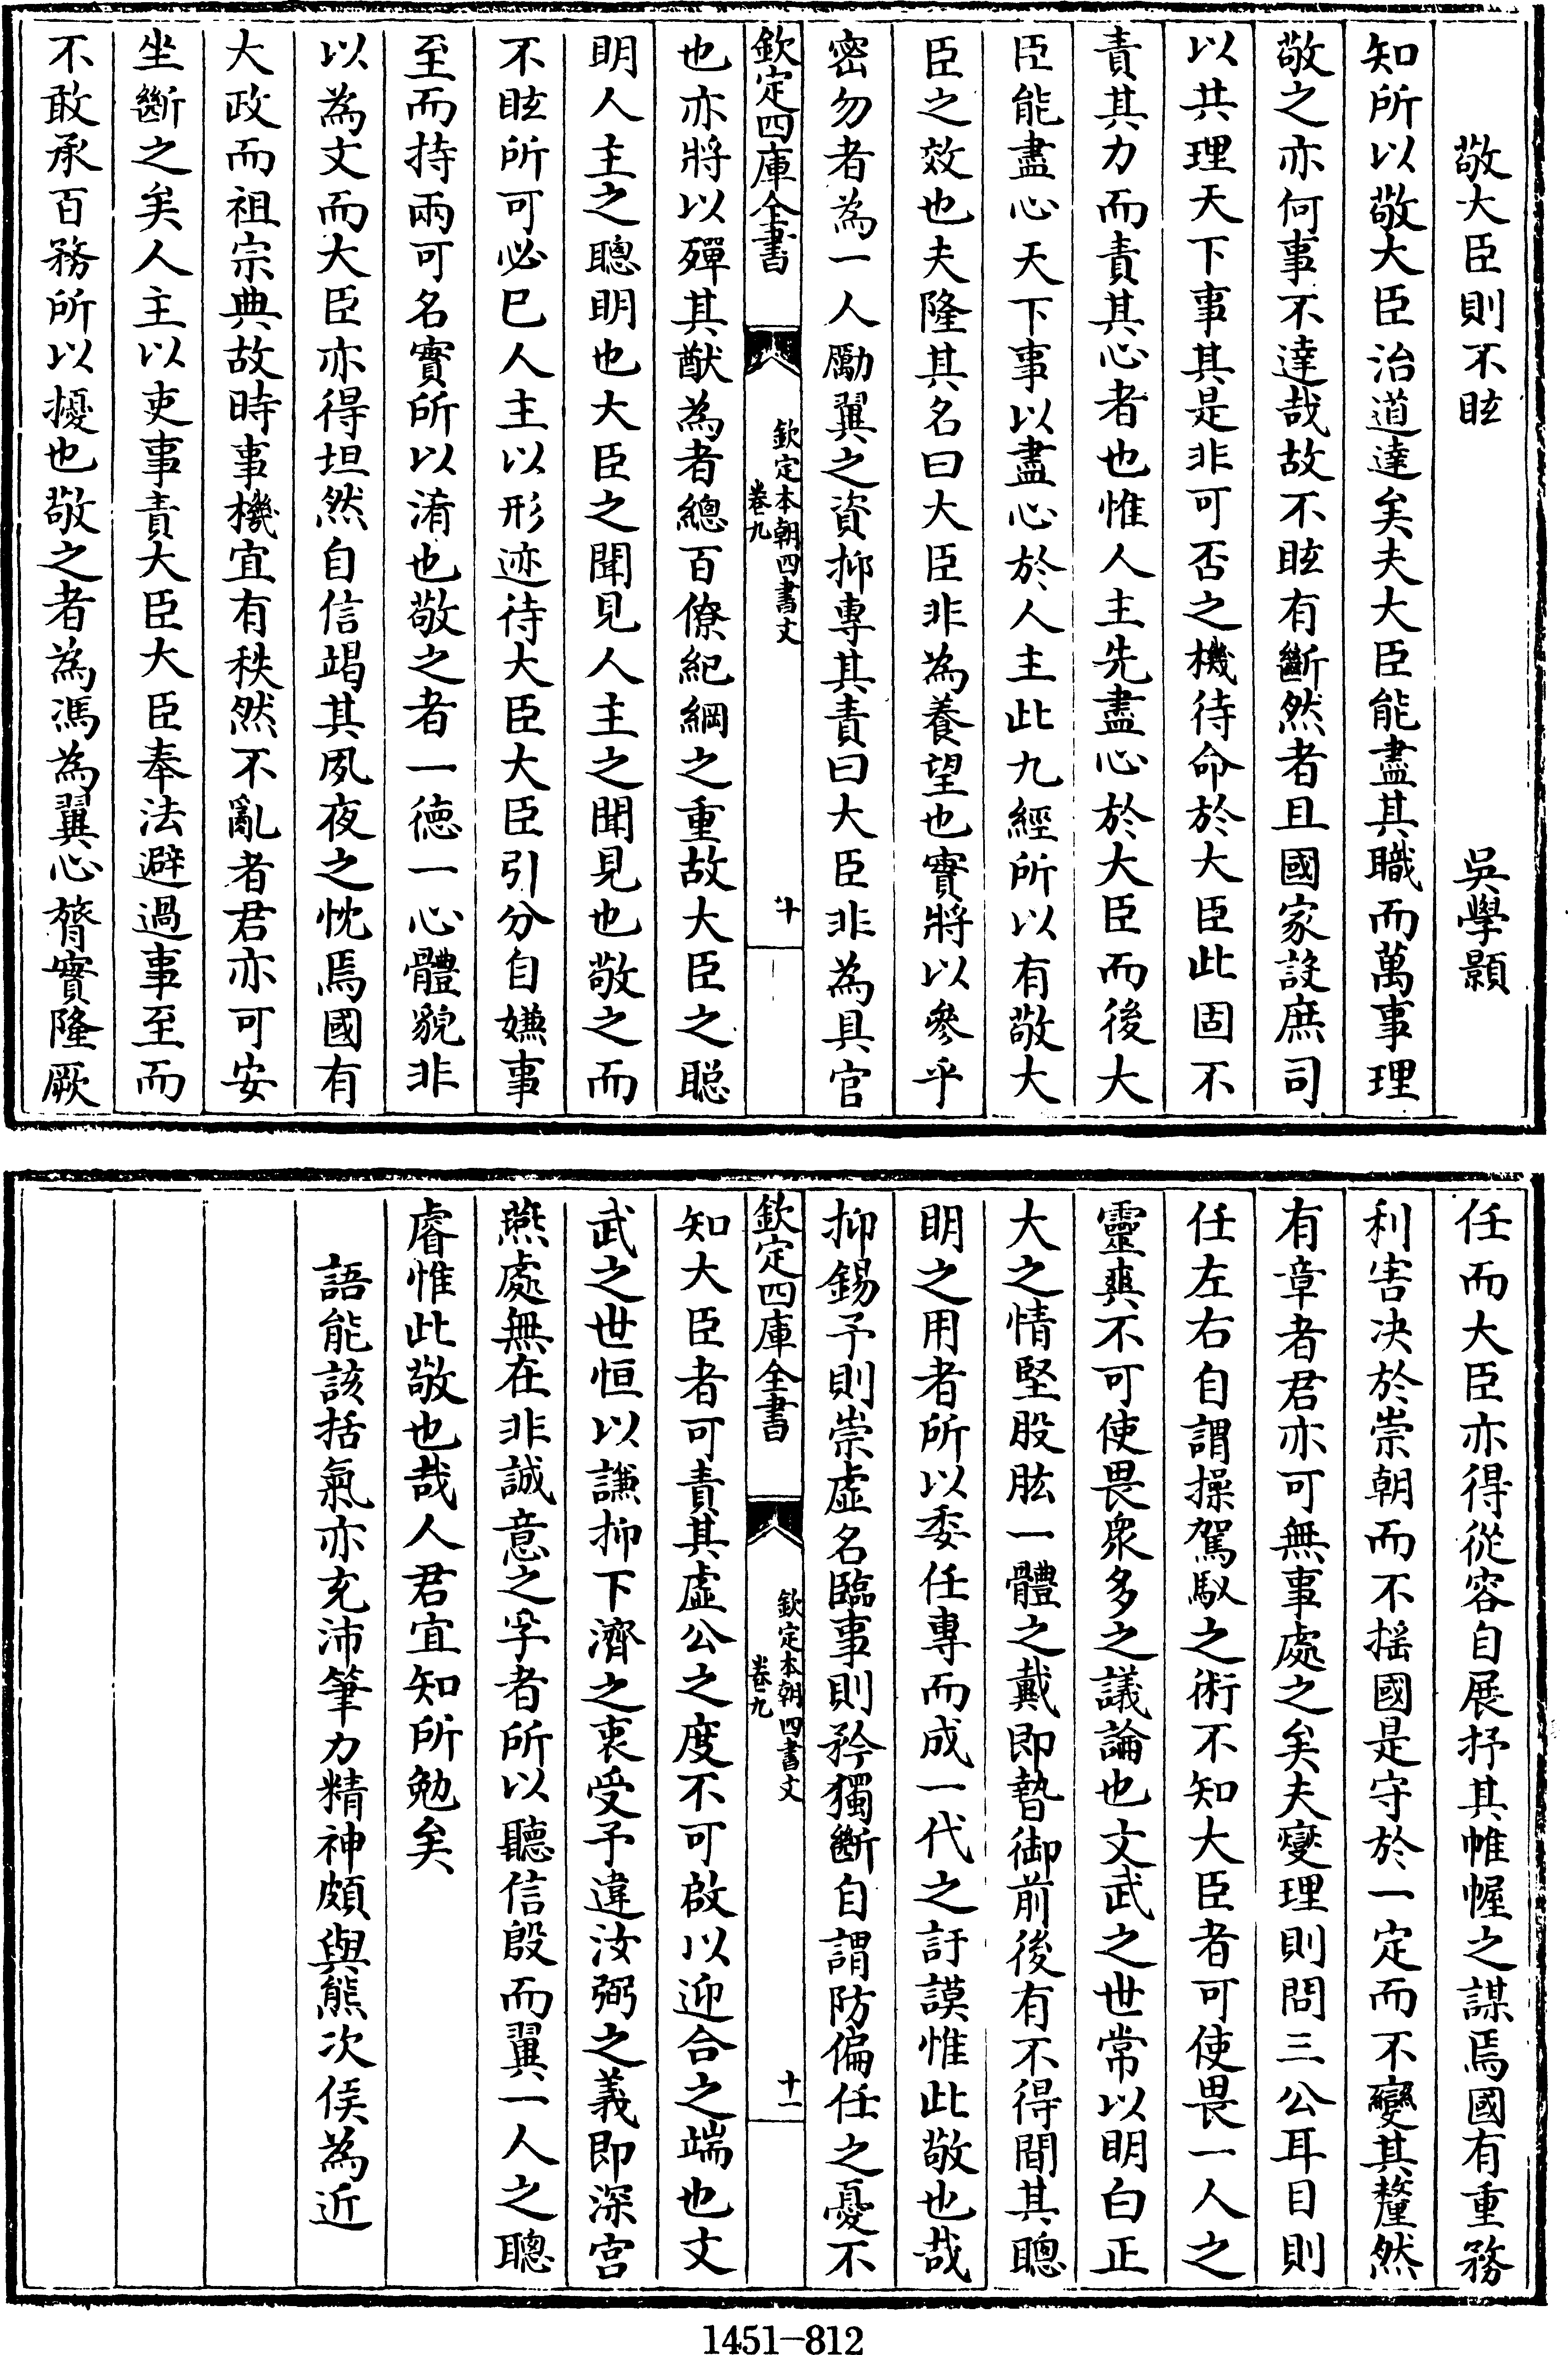 敬大臣則不眩　吳學顥
知所以敬大臣治道達矣夫大臣能盡其職而萬事理
敬之亦何事不達哉故不眩有斷然者且國家設庶司
以共理天下事其是非可否之機待命於大臣此固不
責其力而責其心者也惟人主先盡心於大臣而後大
臣能盡心天下事以盡心於人主此九經所以有敬大
臣之效也夫隆其名曰大臣非為養望也實將以參乎
密勿者為一人勵翼之資抑專其責曰大臣非為具官
欽定四庫全書
欽定本朝四書文
卷九
十
也亦將以殫其猷為者總百僚紀綱之重故大臣之聰
明人主之聰明也大臣之聞見人主之聞見也敬之而
不眩所可必已人主以形迹待大臣大臣引分自嫌事
至而持兩可名實所以淆也敬之者一德一心體貌非
以為文而大臣亦得坦然自信竭其夙夜之忱焉國有
大政而祖宗典故時事機宜有秩然不亂者君亦可安
坐斷之矣人主以吏事責大臣大臣奉法避過事至而
不敢承百務所以擾也敬之者為馮為翼心膂實隆厥
任而大臣亦得從容自展抒其帷幄之謀焉國有重務
利害决於崇朝而不摇國是守於一定而不變其釐然
有章者君亦可無事處之矣夫燮理則問三公耳目則
任左右自謂操駕馭之術不知大臣者可使畏一人之
靈爽不可使畏衆多之議論也文武之世常以明白正
大之情堅股肱一體之戴即暬御前後有不得間其聰
明之用者所以委任專而成一代之訏謨惟此敬也哉
抑錫予則崇虛名臨事則矜獨斷自謂防偏任之憂不
欽定四庫全書
欽定本朝四書文
卷九
十一
知大臣者可責其虛公之度不可啟以迎合之端也文
武之世恒以謙抑下濟之衷受予違汝弼之義即深宫
燕處無在非誠意之孚者所以聽信殷而翼一人之聰
睿惟此敬也哉人君宜知所勉矣
語能該括氣亦充沛筆力精神頗與熊次侯為近
1451-812